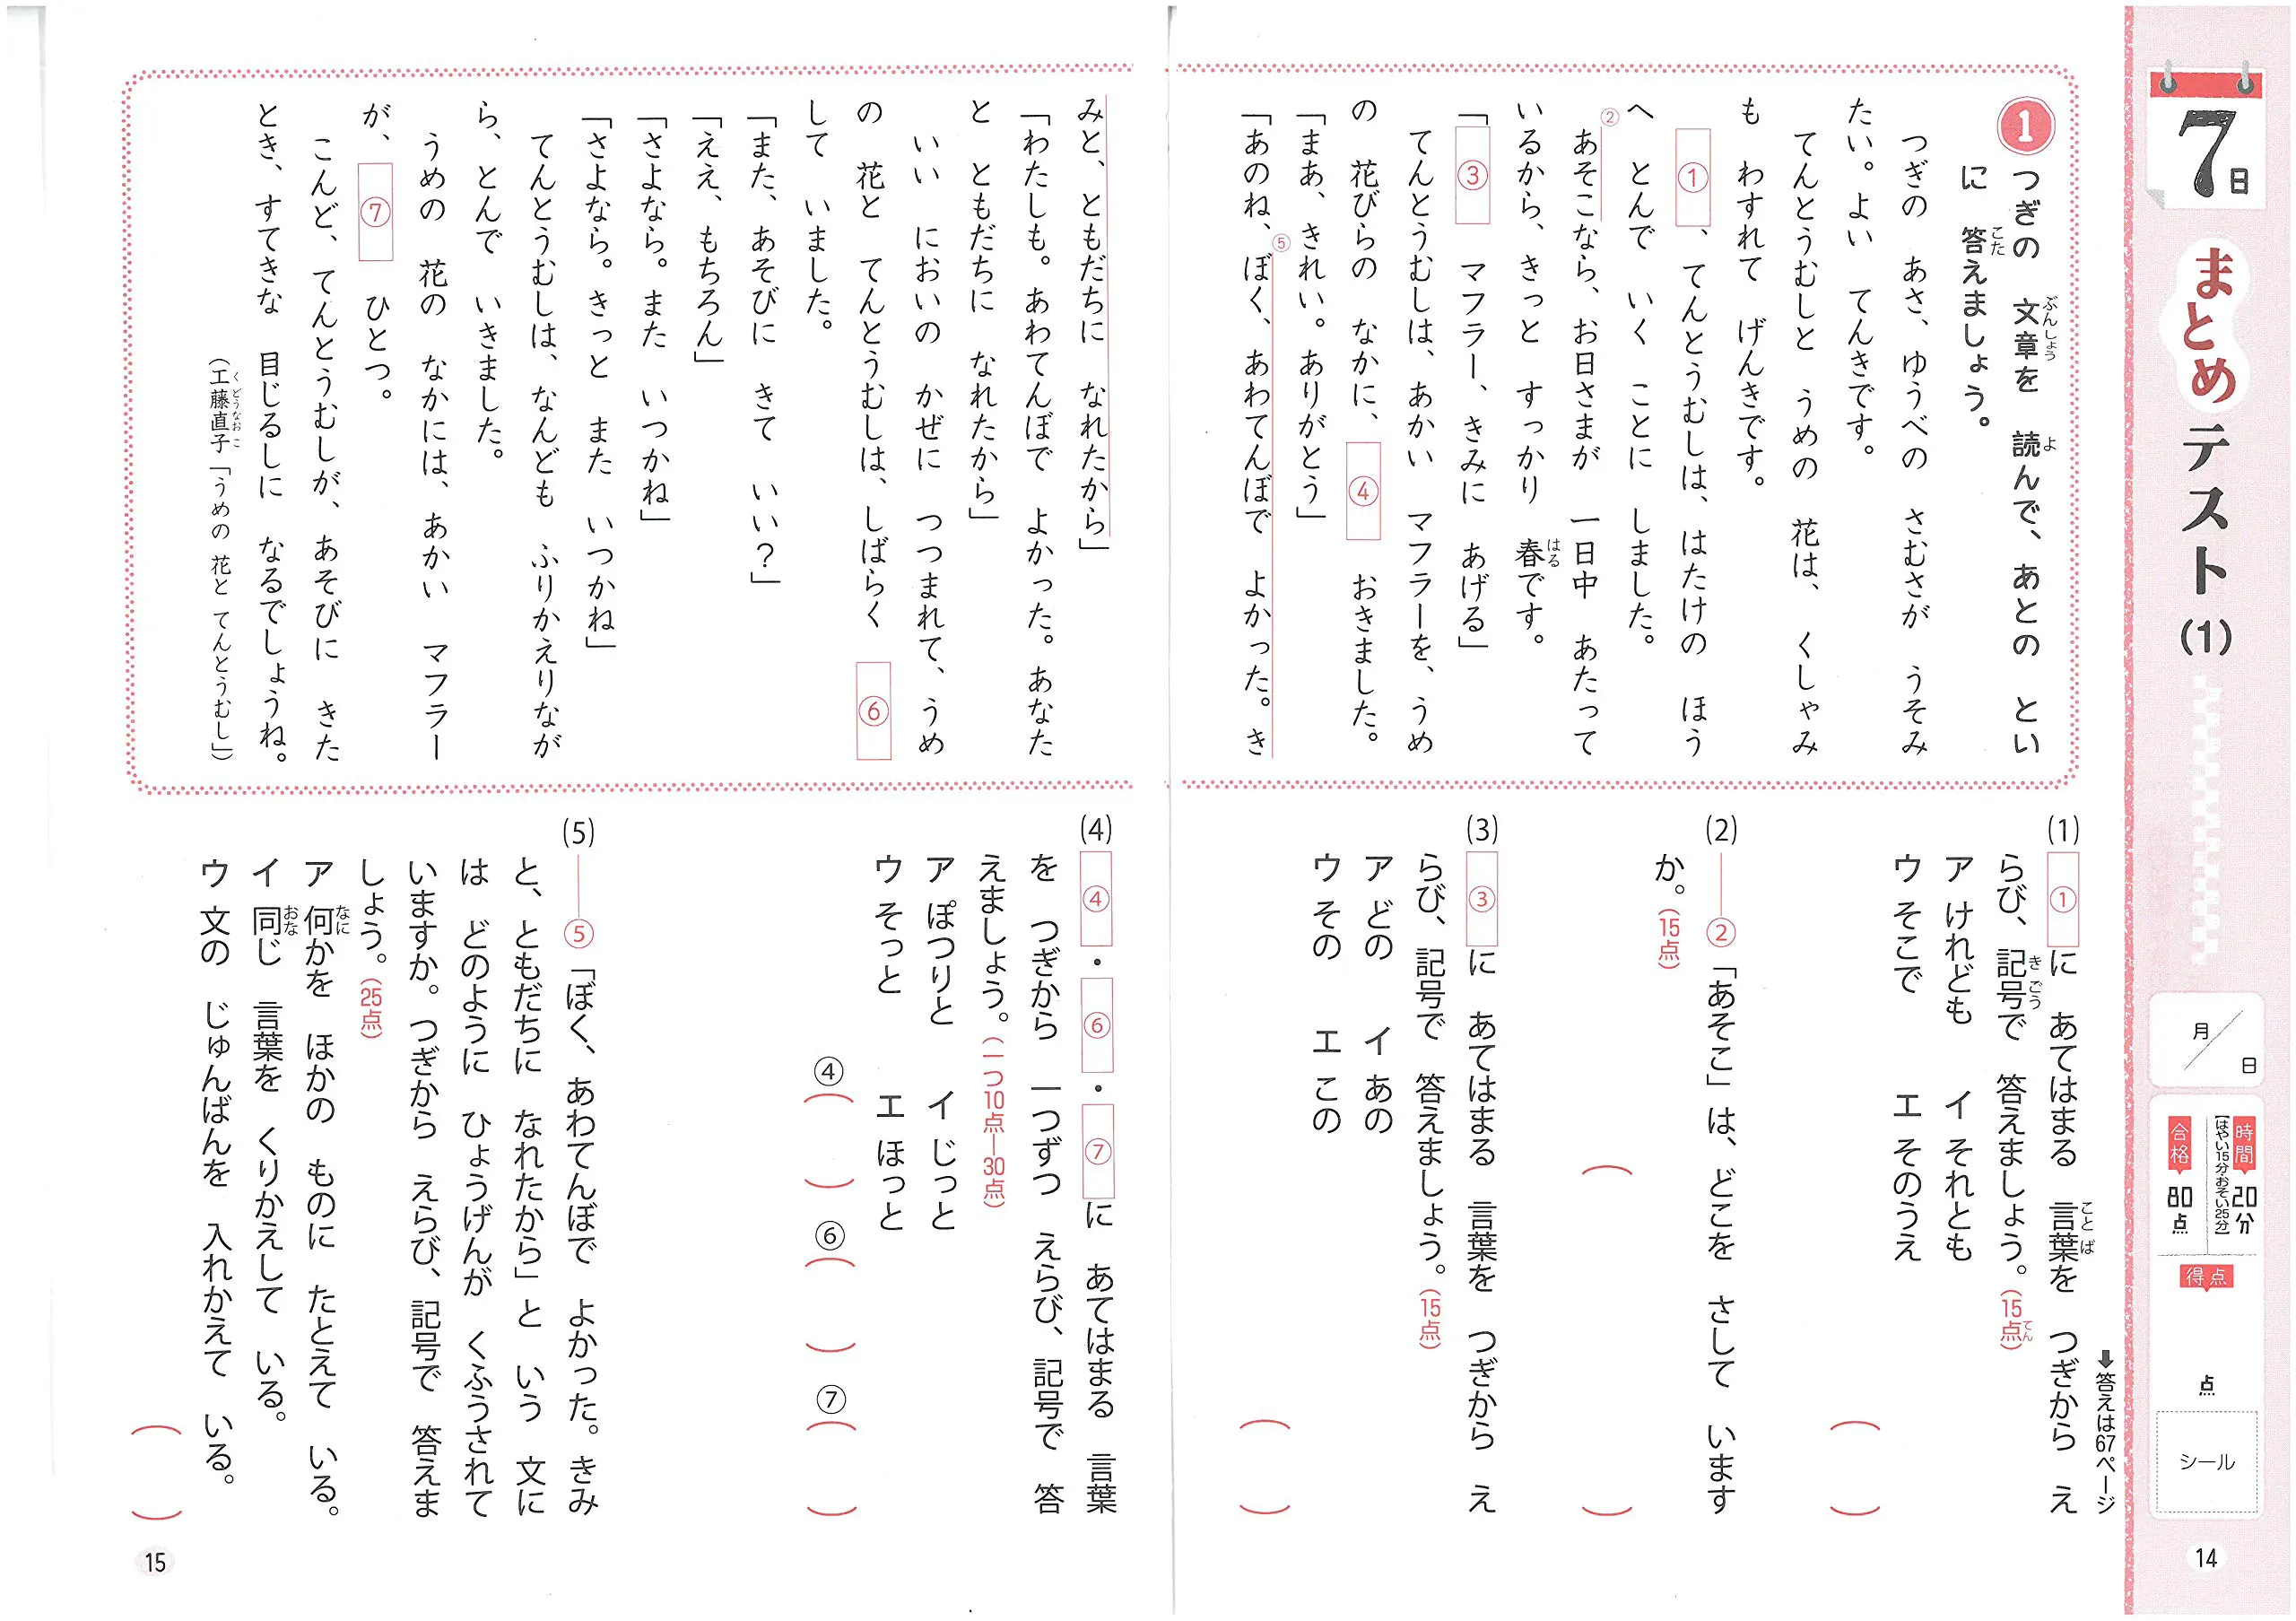 7日
まとめテスト(1)
月 日
時間 20分
【はやい15分・おそい25分】
合格 80点
得点
点
シール
14
➡答えは67ページ
1 つぎの 文章を 読んで、あとの とい
に 答えましょう。
つぎの あさ、ゆうべの さむさが うそみ
たい。よい てんきです。
てんとうむしと うめの 花は、くしゃみ
も わすれて げんきです。
①、てんとうむしは、はたけの ほう
へ とんで いく ことに しました。
②あそこなら、お日さまが 一日中 あたって
いるから、きっと すっかり 春です。
「③ マフラー、きみに あげる」
てんとうむしは、あかい マフラーを、うめ
の 花びらの なかに、④ おきました。
「まあ、きれい。ありがとう」
「あのね、⑤ぼく、あわてんぼで よかった。き
みと、ともだちに なれたから」
「わたしも。あわてんぼで よかった。あなた
と ともだちに なれたから」
いい においの かぜに つつまれて、うめ
の 花と てんとうむしは、しばらく ⑥
して いました。
「また、あそびに きて いい?」
「ええ、もちろん」
「さよなら。また いつかね」
「さよなら。きっと また いつかね」
てんとうむしは、なんども ふりかえりなが
ら、とんで いきました。
うめの 花の なかには、あかい マフラー
が、⑦ ひとつ。
こんど、てんとうむしが、あそびに きた
とき、すてきな 目じるしに なるでしょうね。
(工藤直子「うめの 花と てんとうむし」)
(1) ①に あてはまる 言葉を つぎから え
らび、記号で 答えましょう。(15点)
ア けれども イ それとも
ウ そこで エ そのうえ
( )
(2) ――②「あそこ」は、どこを さして います
か。(15点)
( )
(3) ③に あてはまる 言葉を つぎから え
らび、記号で 答えましょう。(15点)
ア どの イ あの
ウ その エ この
( )
(4) ④・⑥・⑦に あてはまる 言葉
を つぎから 一つずつ えらび、記号で 答
えましょう。(一つ10点―30点)
ア ぽつりと イ じっと
ウ そっと エ ほっと
④( ) ⑥( ) ⑦( )
(5) ――⑤「ぼく、あわてんぼで よかった。きみ
と、ともだちに なれたから」と いう 文に
は どのように ひょうげんが くふうされて
いますか。つぎから えらび、記号で 答えま
しょう。(25点)
ア 何かを ほかの ものに たとえて いる。
イ 同じ 言葉を くりかえして いる。
ウ 文の じゅんばんを 入れかえて いる。
( )
15